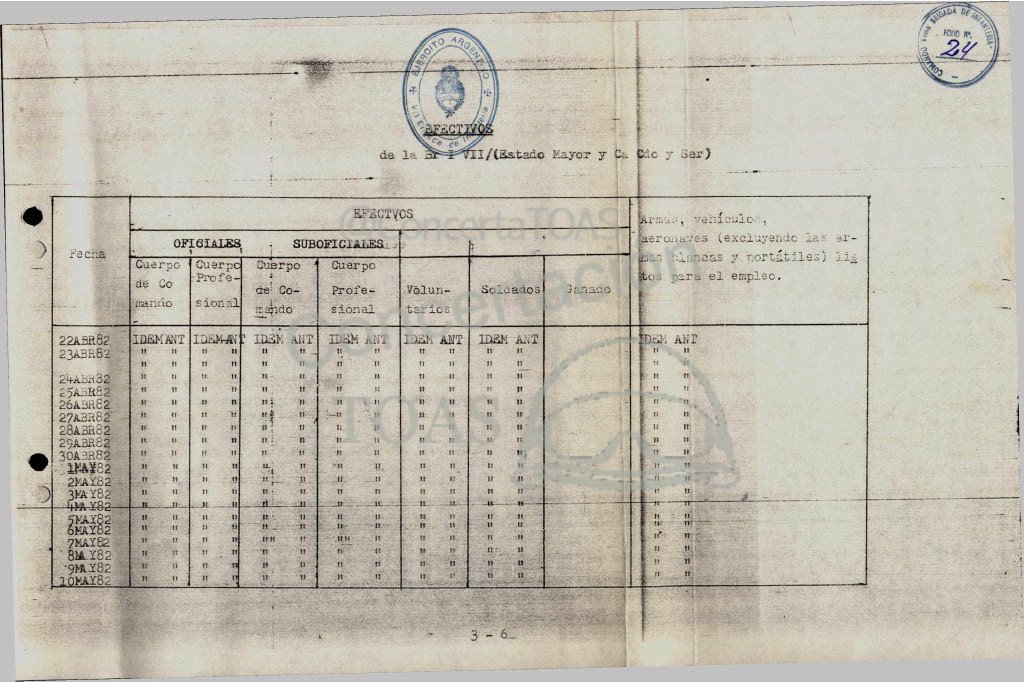 EJERCITO ARGENTINO
COMANDO VIIma BRIGADA DE INFANTERIA
FOLIO Nº.
24
EFECTIVOS
de la Br I VII/(Estado Mayor y Ca Cdo y Ser)
@ConcertaTOAS
Concertación
TOAS
Fecha
EFECTVOS
Armas, vehículos,
aeronaves (excluyendo las ar-
mas blancas y portátiles) lis
tos para el empleo.
OFICIALES SUBOFICIALES
Cuerpo de Co mando
Cuerpo Profe- sional
Cuerpo de Co- mando
Cuerpo Profe- sional
Volun- tarios
Soldados
Ganado
22ABR82 IDEM ANT IDEM ANT IDEM ANT IDEM ANT IDEM ANT IDEM ANT IDEM ANT
23ABR82 " " " " " " " " " " " " " "
24ABR82 " " " " " " " " " " " " " "
25ABR82 " " " " " " " " " " " " " "
26ABR82 " " " " " " " " " " " " " "
27ABR82 " " " " " " " " " " " " " "
28ABR82 " " " " " " " " " " " " " "
29ABR82 " " " " " " " " " " " " " "
30ABR82 " " " " " " " " " " " " " "
1MAY82 " " " " " " " " " " " " " "
2MAY82 " " " " " " " " " " " " " "
3MAY82 " " " " " " " " " " " " " "
4MAY82 " " " " " " " " " " " " " "
5MAY82 " " " " " " " " " " " " " "
6MAY82 " " " " " " " " " " " " " "
7MAY82 " " " " "" " "" " " " " " " "
8MAY82 " " " " " " " " " " " " " "
9MAY82 " " " " " " " " " " " " " "
10MAY82 " " " " " " " " " " " " " "
3 - 6